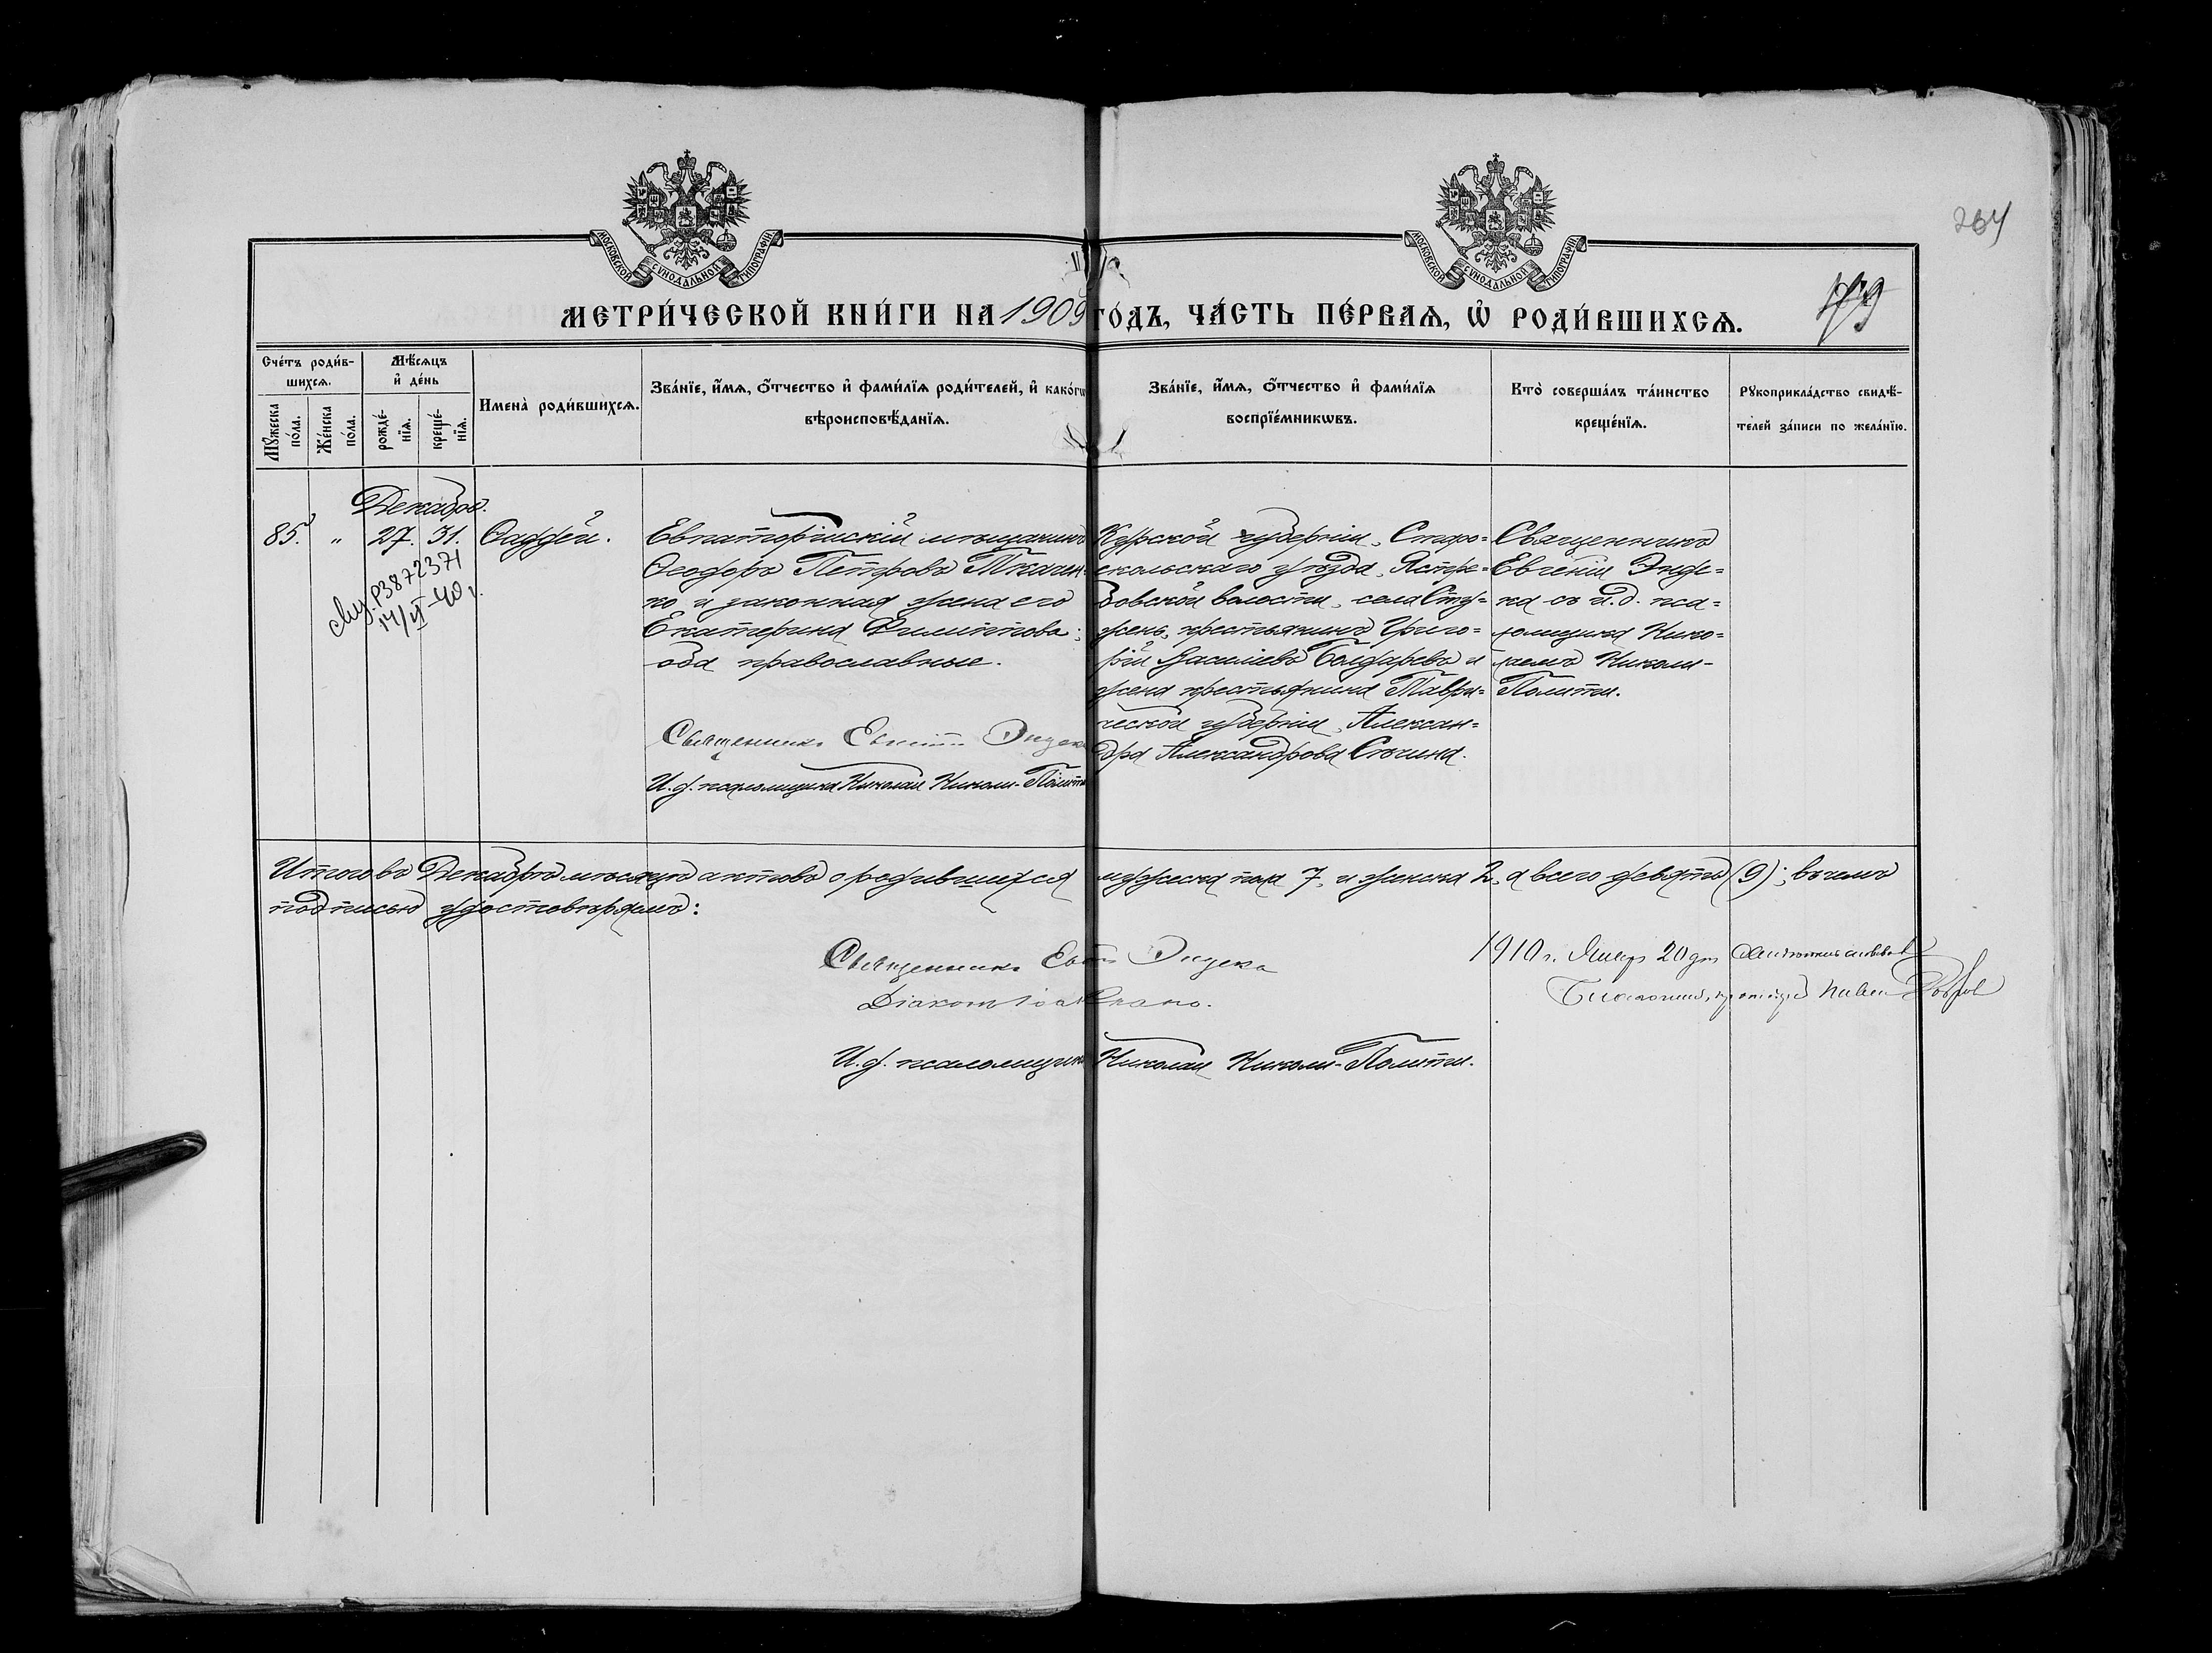 264
МОСКОВСКОЙ СУНОДАЛЬНОЙ ТИПОГРАФІИ
МОСКОВСКОЙ СУНОДАЛЬНОЙ ТИПОГРАФІИ
МЕТРИ́ЧЕСКОЙ КНИ́ГИ НА 1909 ГО́ДЪ, ЧА́СТЬ ПЕ́РВАѦ, Ѡ҆ РОДИ́ВШИХСѦ.
179
Сче́тъ роди́в-
шихсѧ.
Мꙋ́жеска по́ла.
Же́нска по́ла.
Мѣ́сѧцъ
и҆ де́нь
рожде́-
нїѧ.
креще́-
нїѧ.
Имена̀ роди́вшихсѧ.
Зва́нїе, и҆́мѧ, ѻ҆́тчество и҆ фами́лїѧ роди́телей, и҆ како́гѡ
вѣроисповѣ́данїѧ.
Зва́нїе, и҆́мѧ, ѻ҆́тчество и҆ фами́лїѧ
воспрїе́мникѡвъ.
Кто̀ соверша́лъ та́инство
креще́нїѧ.
Рꙋкоприкла́дство свидѣ́-
телей за́писи по жела́нїю.
Декабрь.
85. " 27. 31. Ѳаддей.
свид. РЗ 872371
14/VI-40 г.
Евпаторійскій мѣщанинъ
Ѳеодоръ Петровъ Ткачен-
ко и законная жена его
Екатерина Филиппова;
оба православные.
Священникъ Евгеній Эндека
И. д. псаломщика Николай Николи-Полити
Курской губерніи, Старо-
оскольскаго уѣзда, Ястре-
бовской волости, села Сту-
жень, крестьянинъ Григо-
рій Василіевъ Болдаревъ и
жена крестьянина Таври-
ческой губерніи, Алексан-
дра Александрова Сѣчина.
Священникъ
Евгеній Энде-
ка съ и.д. пса-
ломщика Нико-
лаемъ Николи-
Полити.
Итого въ Декабрѣ мѣсяцѣ актовъ о родившихся мужеска пола 7, и женска 2, а всего девять (9); въ чемъ
подписью удостовѣряемъ:
Священникъ Евгеній Эндека
Діаконъ
И. д. псаломщика Николай Николи-Полити.
1910 г. Январ 20 дня
Благочинный, протоіерей Павелъ